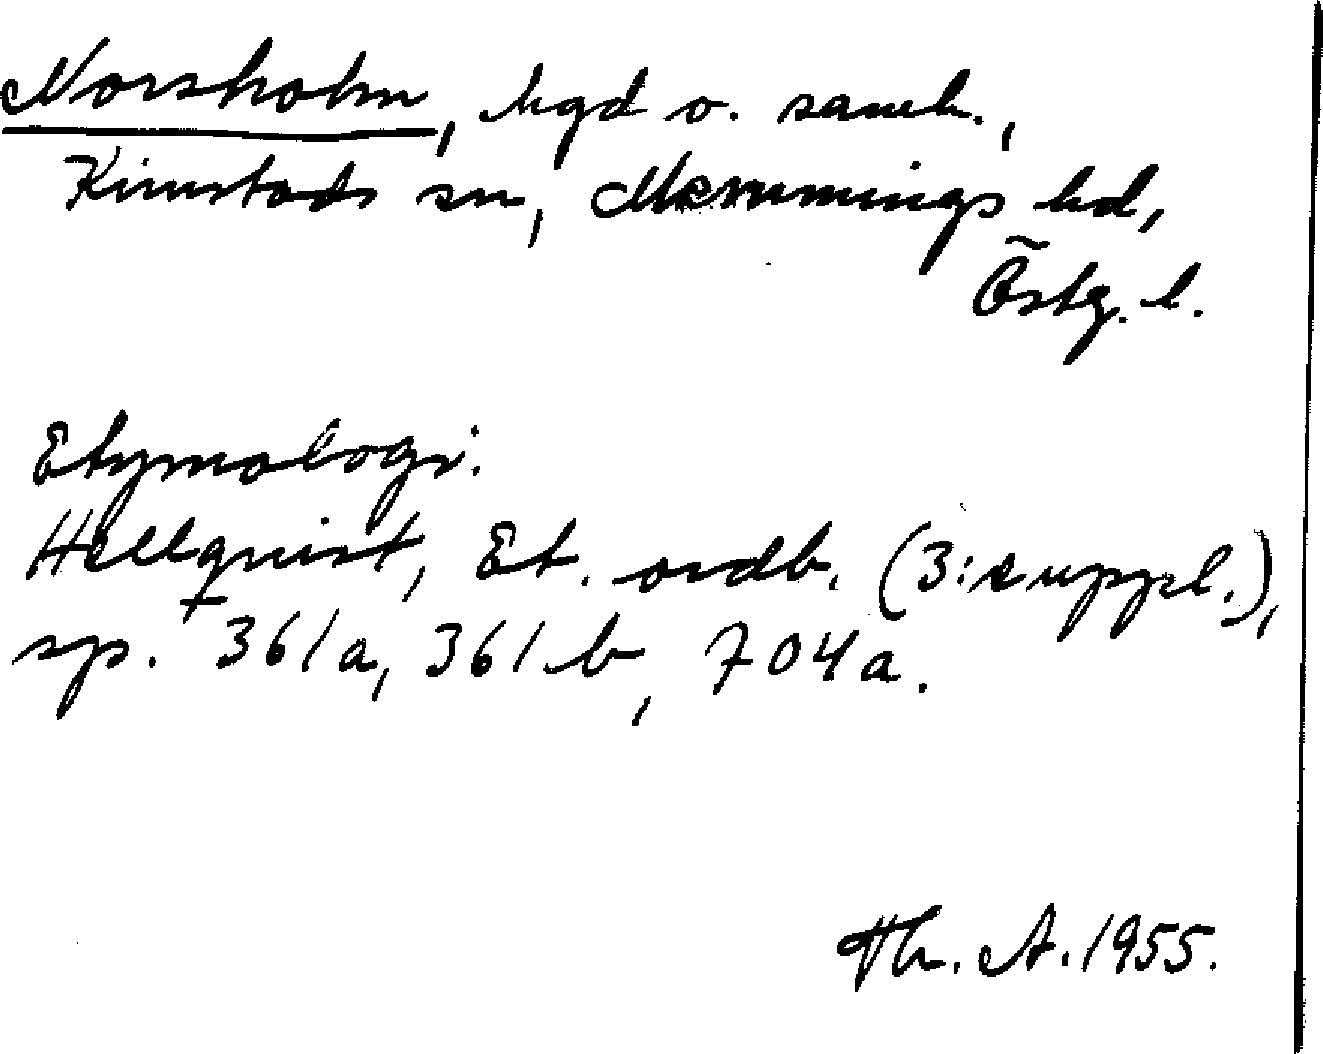 Norsholm, hgd o. samh.,
Kimstads sn, Memmings hd,
Östg. l.
Etymologi:
Hellquist, Et. ordb. (3:suppl.),
sp. 361a, 361b, 704a.
Th. A. 1955.